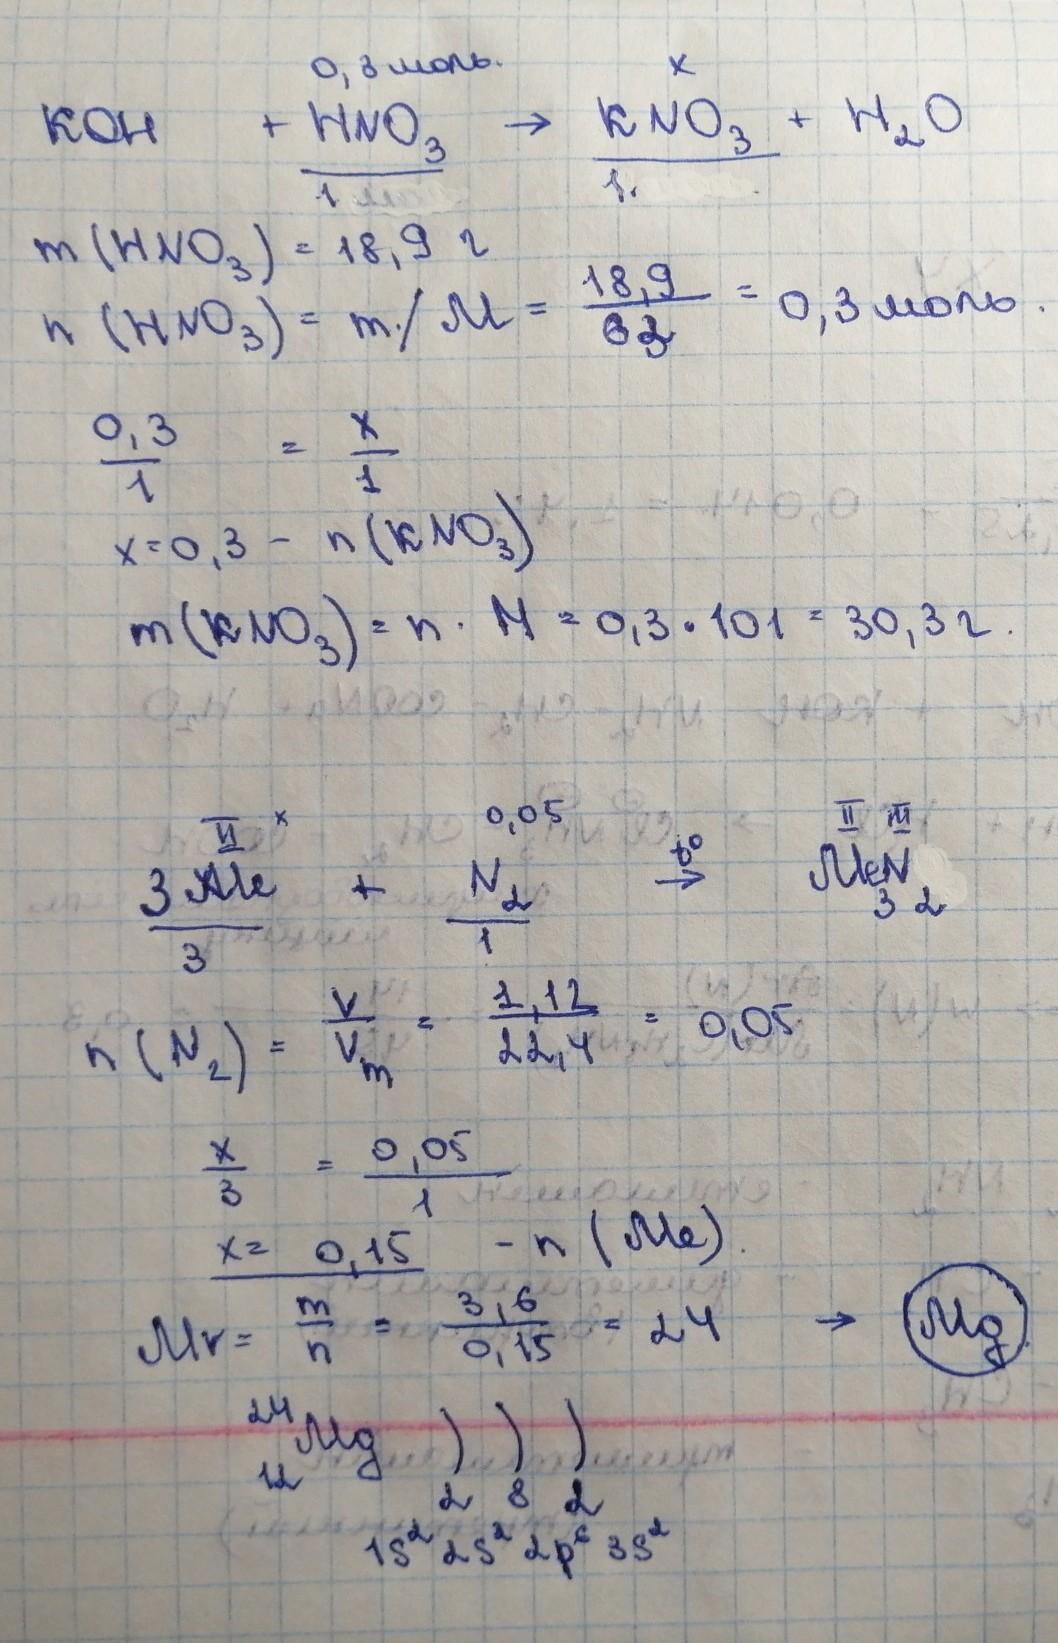 0,3 моль. x
KOH + HNO3 → KNO3 + H2O
1 1.
m (HNO3) = 18,9 г
n (HNO3) = m/M = 18,9/63 = 0,3 моль.
0,3/1 = x/1
x=0,3 - n(KNO3)
m(KNO3) = n · M = 0,3·101 = 30,3 г.
II x 0,05 II III
3Me + N2 t° → Me3N2
3 1
n (N2) = V/Vm = 1,12/22,4 = 0,05
x/3 = 0,05/1
x = 0,15 - n (Me).
Mr = m/n = 3,6/0,15 = 24 → Mg
24 12 Mg ) ) )
2 8 2
1s² 2s² 2p⁶ 3s²